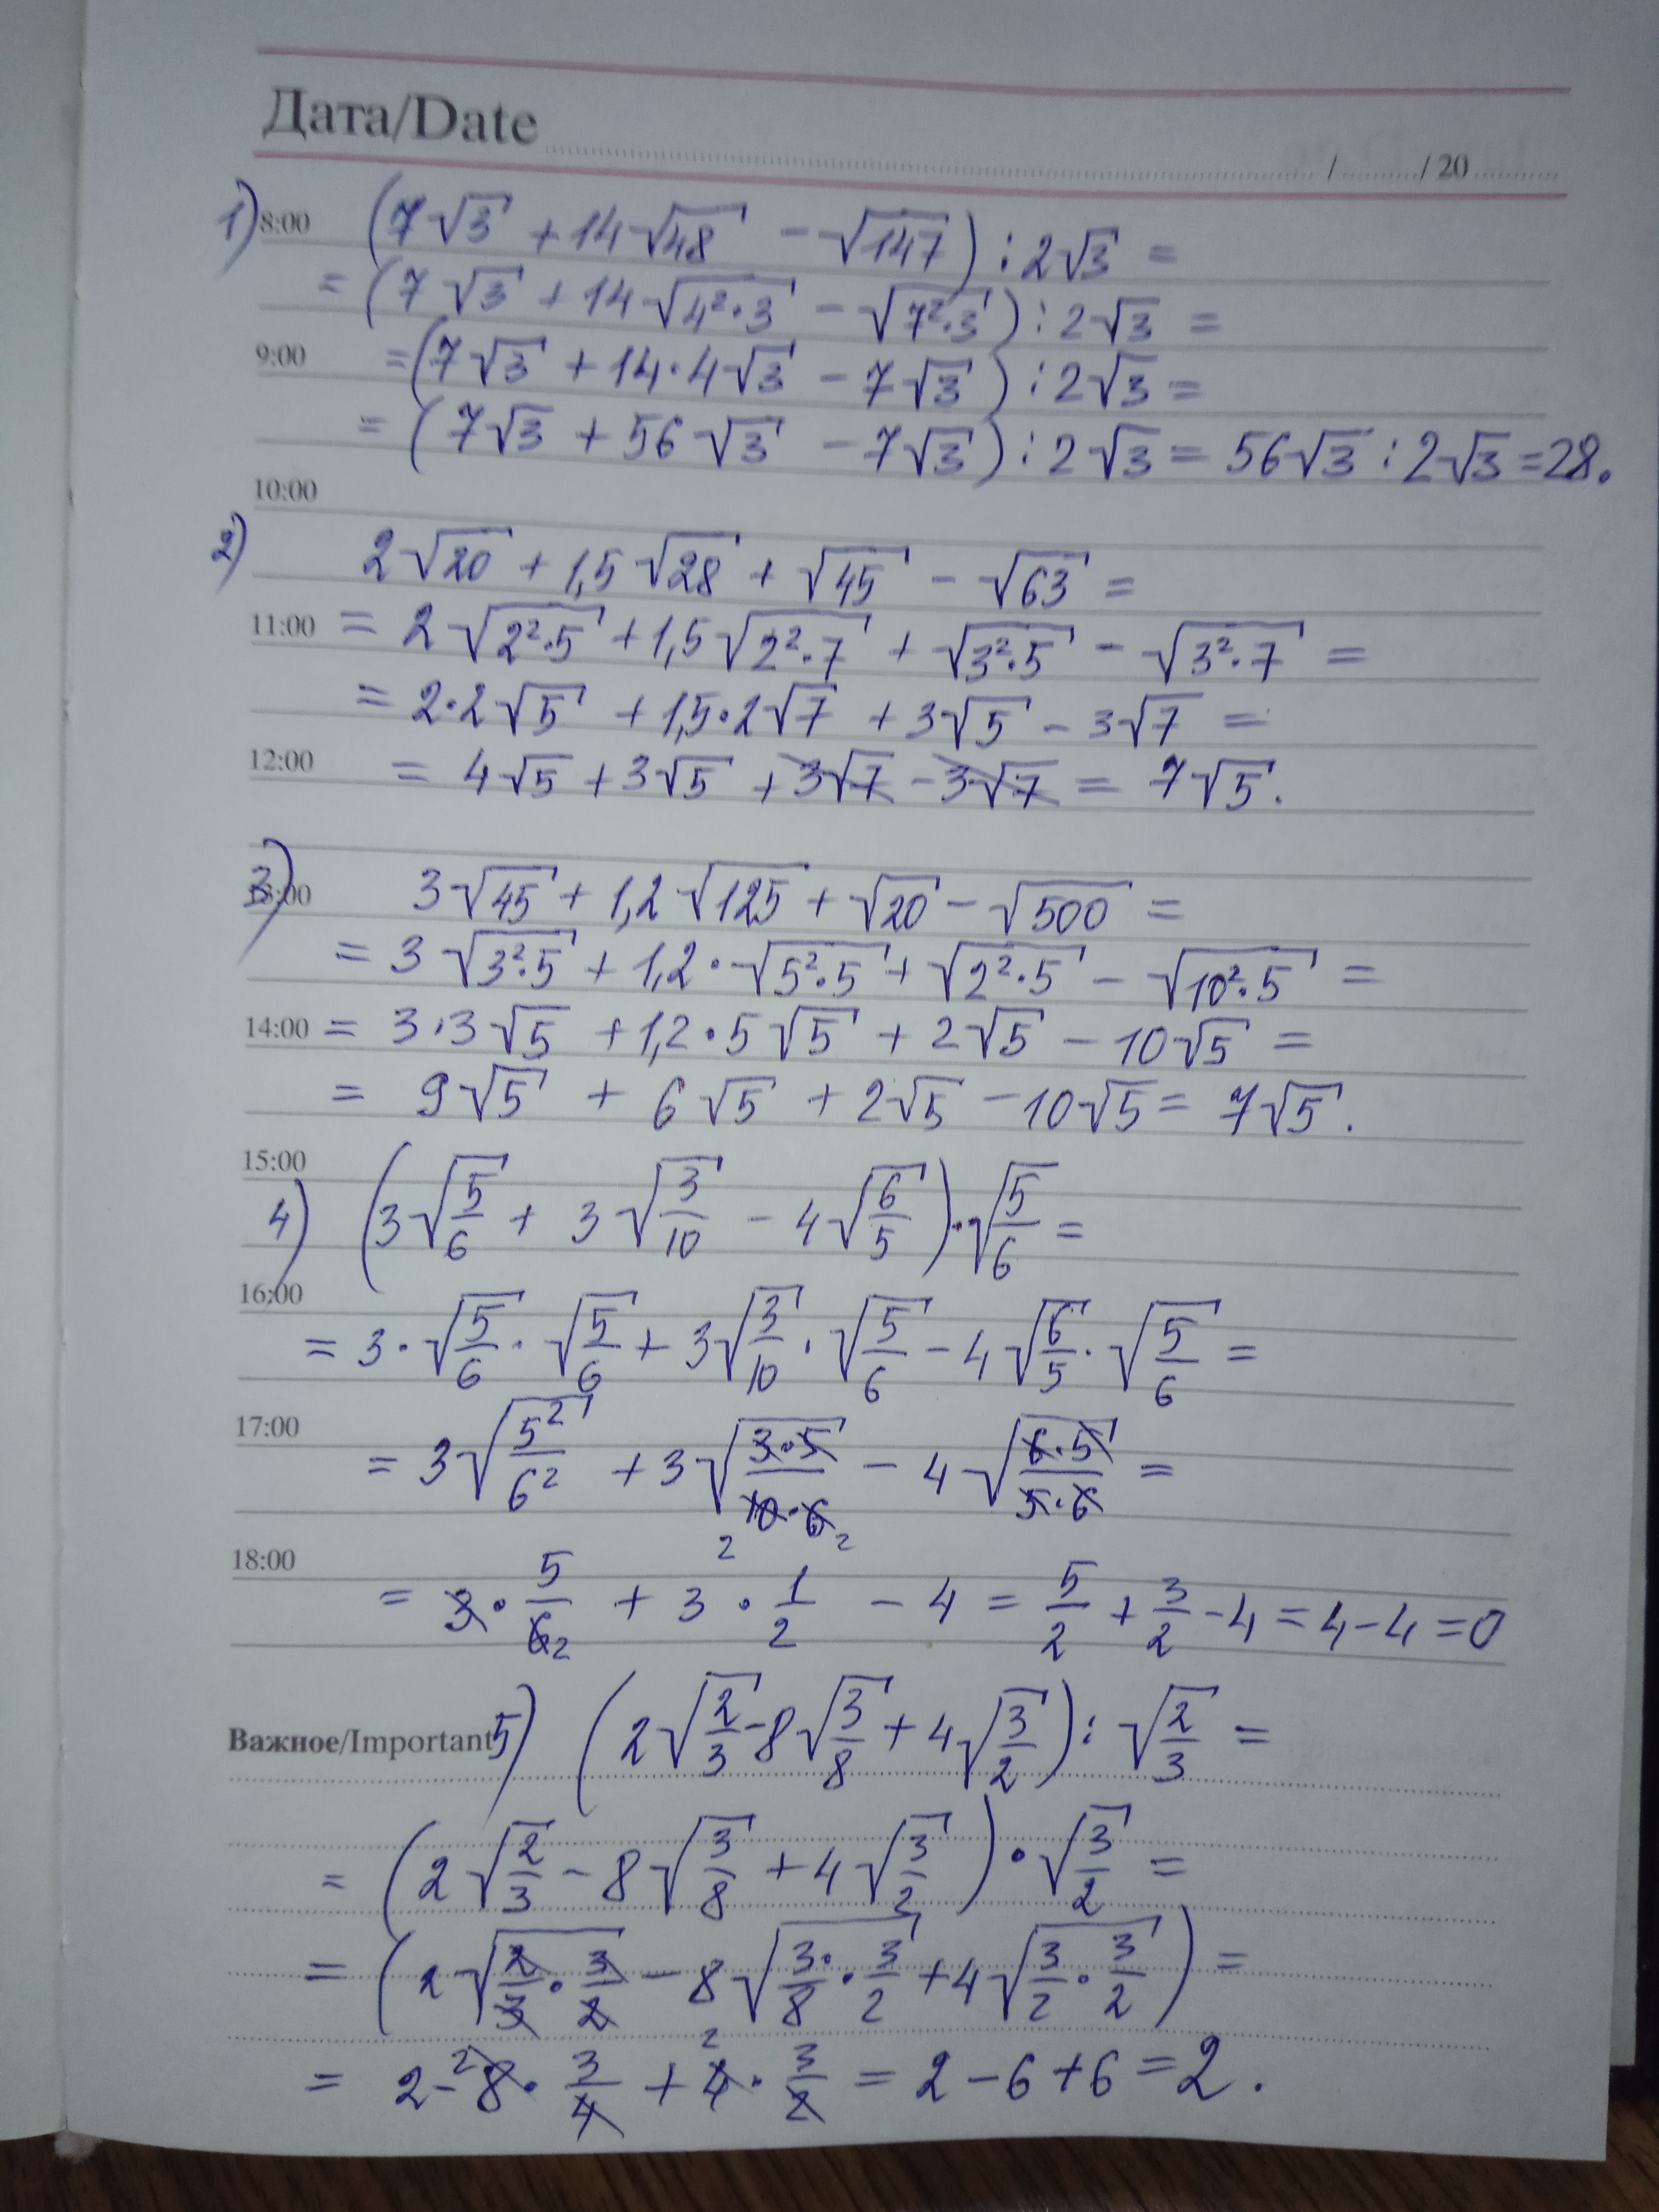 Дата/Date ........ / ........ / 20 ........
1) 8:00 (7√3 + 14√48 - √147) : 2√3 =
= (7√3 + 14√(4²·3) - √(7²·3)) : 2√3 =
9:00 = (7√3 + 14·4√3 - 7√3) : 2√3 =
= (7√3 + 56√3 - 7√3) : 2√3 = 56√3 : 2√3 = 28.
10:00
2) 2√20 + 1,5√28 + √45 - √63 =
11:00 = 2√(2²·5) + 1,5√(2²·7) + √(3²·5) - √(3²·7) =
= 2·2√5 + 1,5·2√7 + 3√5 - 3√7 =
12:00 = 4√5 + 3√5 + 3√7 - 3√7 = 7√5.
3) 13:00 3√45 + 1,2√125 + √20 - √500 =
= 3√(3²·5) + 1,2·√(5²·5) + √(2²·5) - √(10²·5) =
14:00 = 3·3√5 + 1,2·5√5 + 2√5 - 10√5 =
= 9√5 + 6√5 + 2√5 - 10√5 = 7√5.
15:00
4) (3√(5/6) + 3√(3/10) - 4√(6/5))·√(5/6) =
16:00
= 3·√(5/6)·√(5/6) + 3√(3/10)·√(5/6) - 4√(6/5)·√(5/6) =
17:00
= 3√(5²/6²) + 3√((3·5)/(10·6)) - 4√((6·5)/(5·6)) =
2 2
18:00
= 3·5/6 2 + 3·1/2 - 4 = 5/2 + 3/2 - 4 = 4 - 4 = 0
Важное/Important 5) (2√(2/3) - 8√(3/8) + 4√(3/2)) : √(2/3) =
= (2√(2/3) - 8√(3/8) + 4√(3/2))·√(3/2) =
= (2√(2/3·3/2) - 8√(3/8·3/2) + 4√(3/2·3/2)) =
= 2 - 2 8·3/4 + 2 4·3/2 = 2 - 6 + 6 = 2.